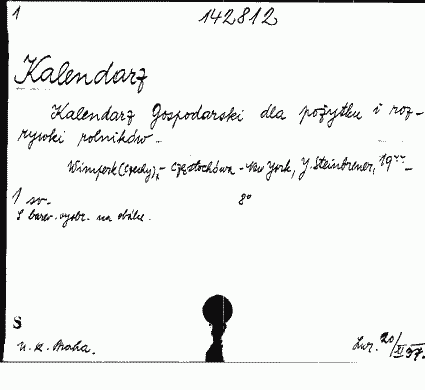 1 142812
Kalendarz
Kalendarz Gospodarski dla pożytku i roz-
rywki rolników.
Wimperk (Czechy), - Częstochówa - New York, J. Steinbrener, 19
1 sv. 8°
S barev. vyobr. na obálce.
S
U. K. Praha. 20/XI